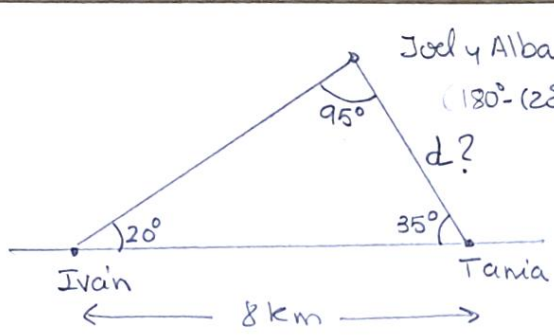 Joel y Alba
(180°-(20
95°
d?
20°
35°
Iván
Tania
8 km